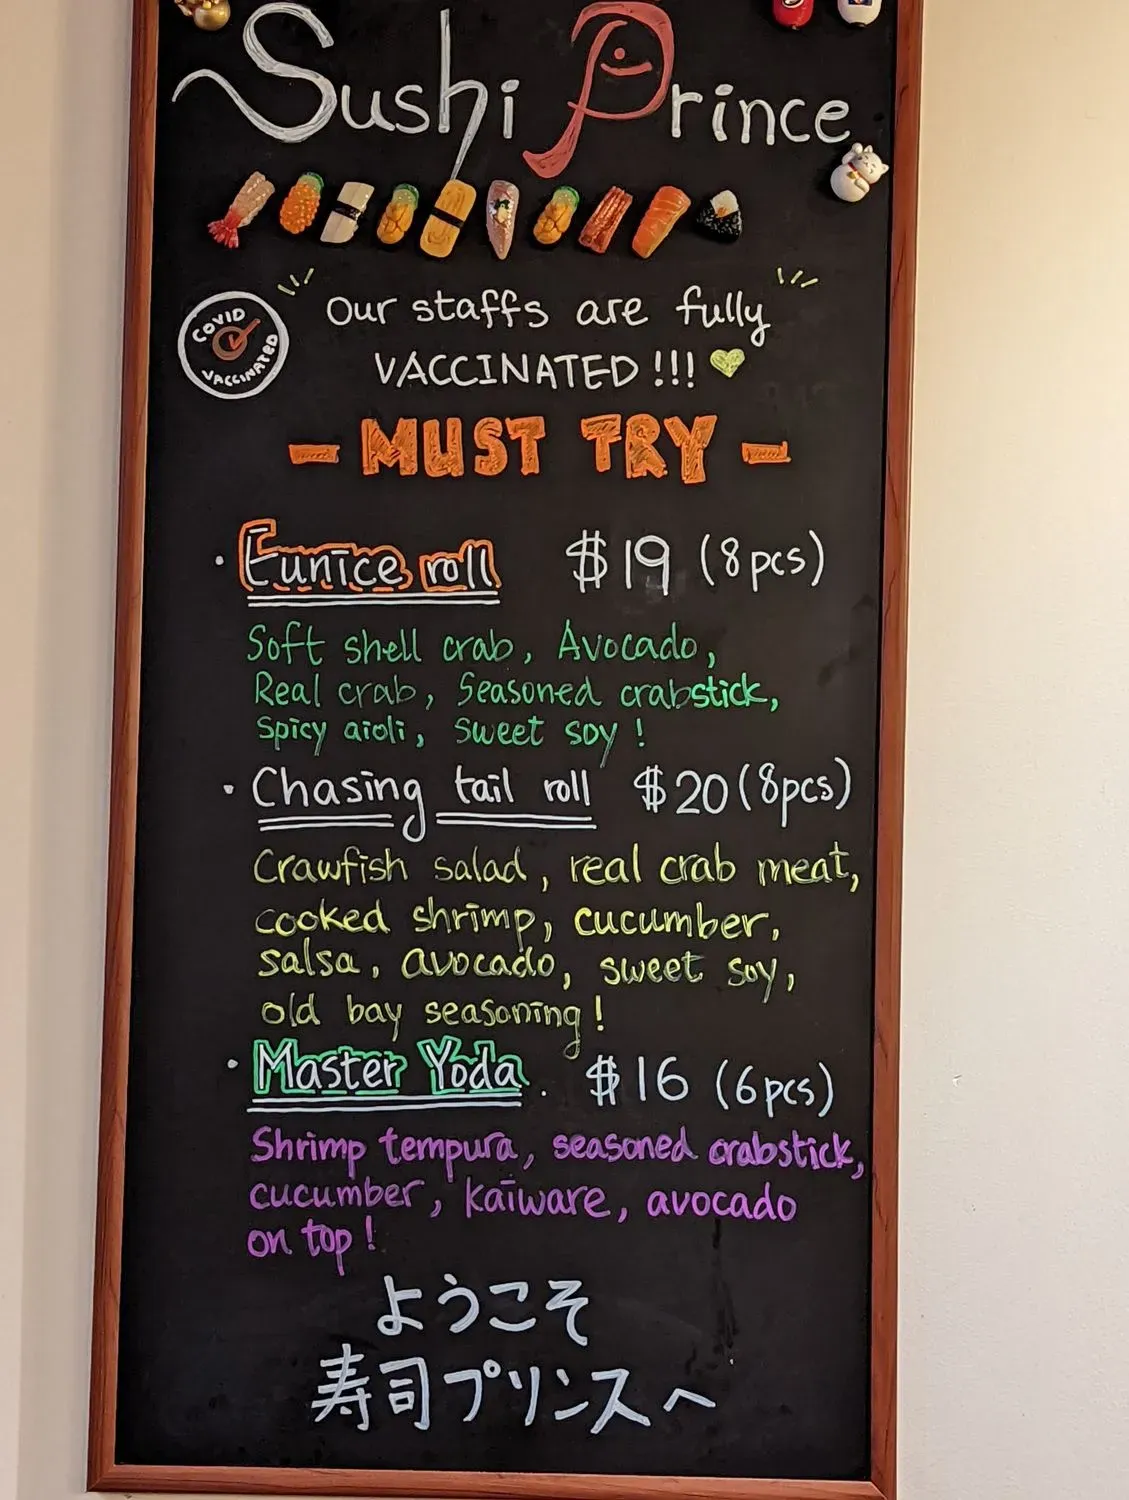 Sushi Prince
Our staffs are fully
COVID VACCINATED
VACCINATED !!!
- MUST TRY -
· Eunice roll $19 (8pcs)
Soft shell crab, Avocado,
Real crab, Seasoned crabstick,
Spicy aioli, sweet soy!
· Chasing tail roll $20 (8pcs)
Crawfish salad, real crab meat,
cooked shrimp, cucumber,
salsa, avocado, sweet soy,
old bay seasoning!
· Master Yoda. $16 (6pcs)
Shrimp tempura, seasoned crabstick,
cucumber, kaiware, avocado
on top!
ようこそ
寿司プリンスへ